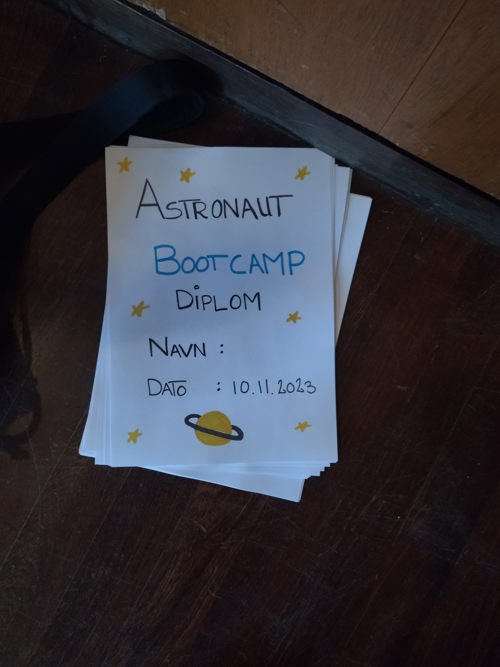 ASTRONAUT
BOOTCAMP
DIPLOM
NAVN :
DATO : 10.11.2023